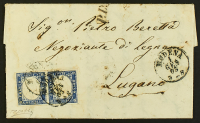 P.D.
Sig.r Pietro Beretta
Negoziante di Legna
Lugano
MODENA